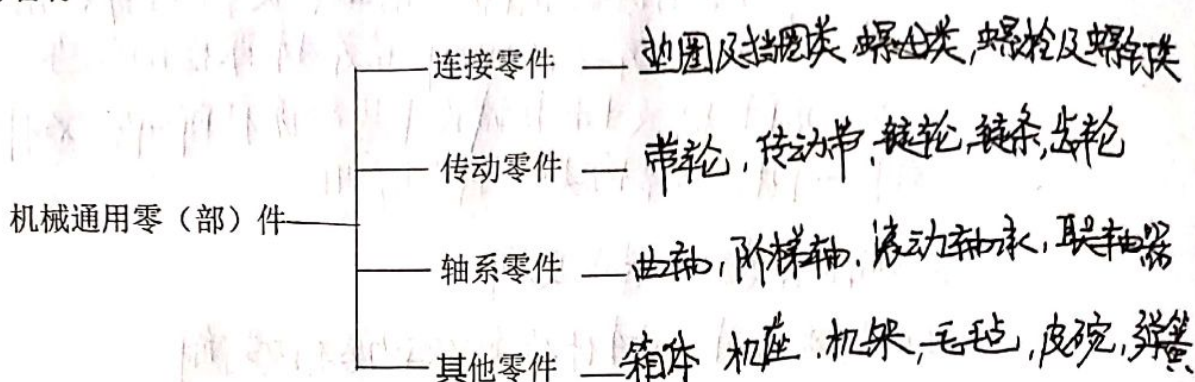 连接零件 — 垫圈及挡圈类 螺母类,螺栓及螺钉类
传动零件 — 带轮,传动带,链轮,链条,齿轮
机械通用零（部）件
轴系零件 — 曲轴,阶梯轴,滚动轴承,联轴器
其他零件 — 箱体 机座,机架,毛毡,皮碗,弹簧